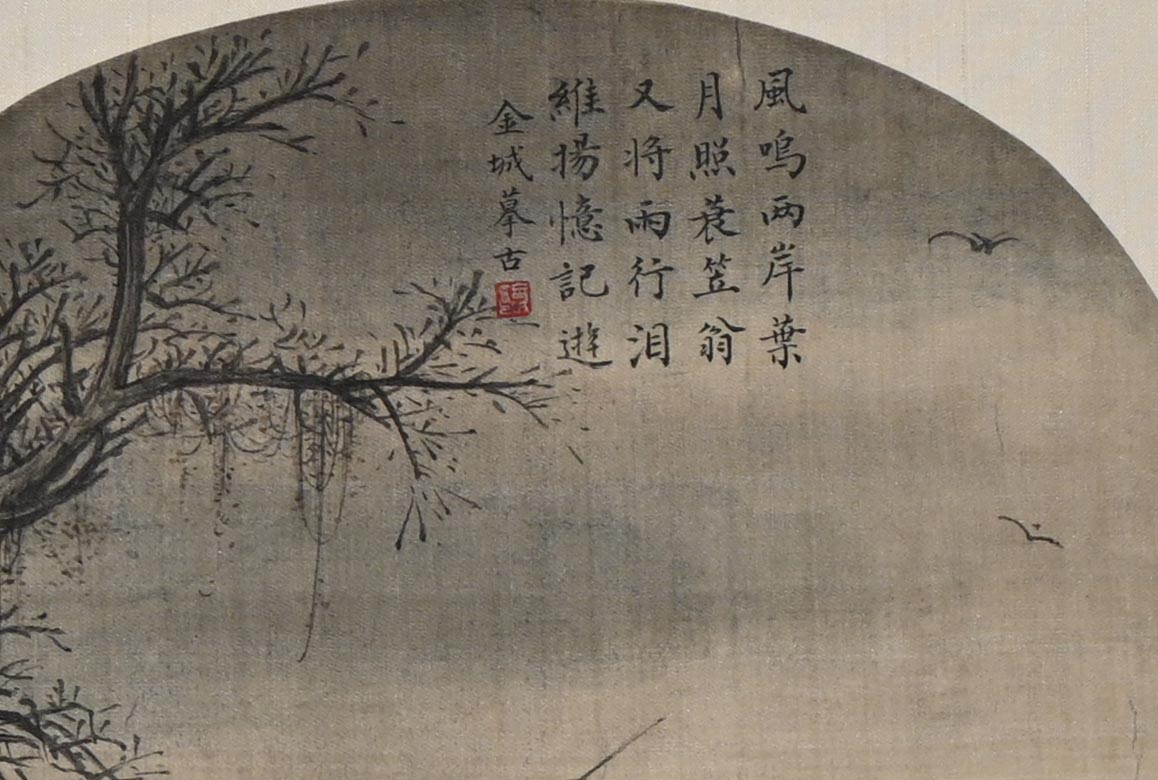 風鳴兩岸葉
月照蓑笠翁
又将雨行泪
維揚憶記遊
金城摹古